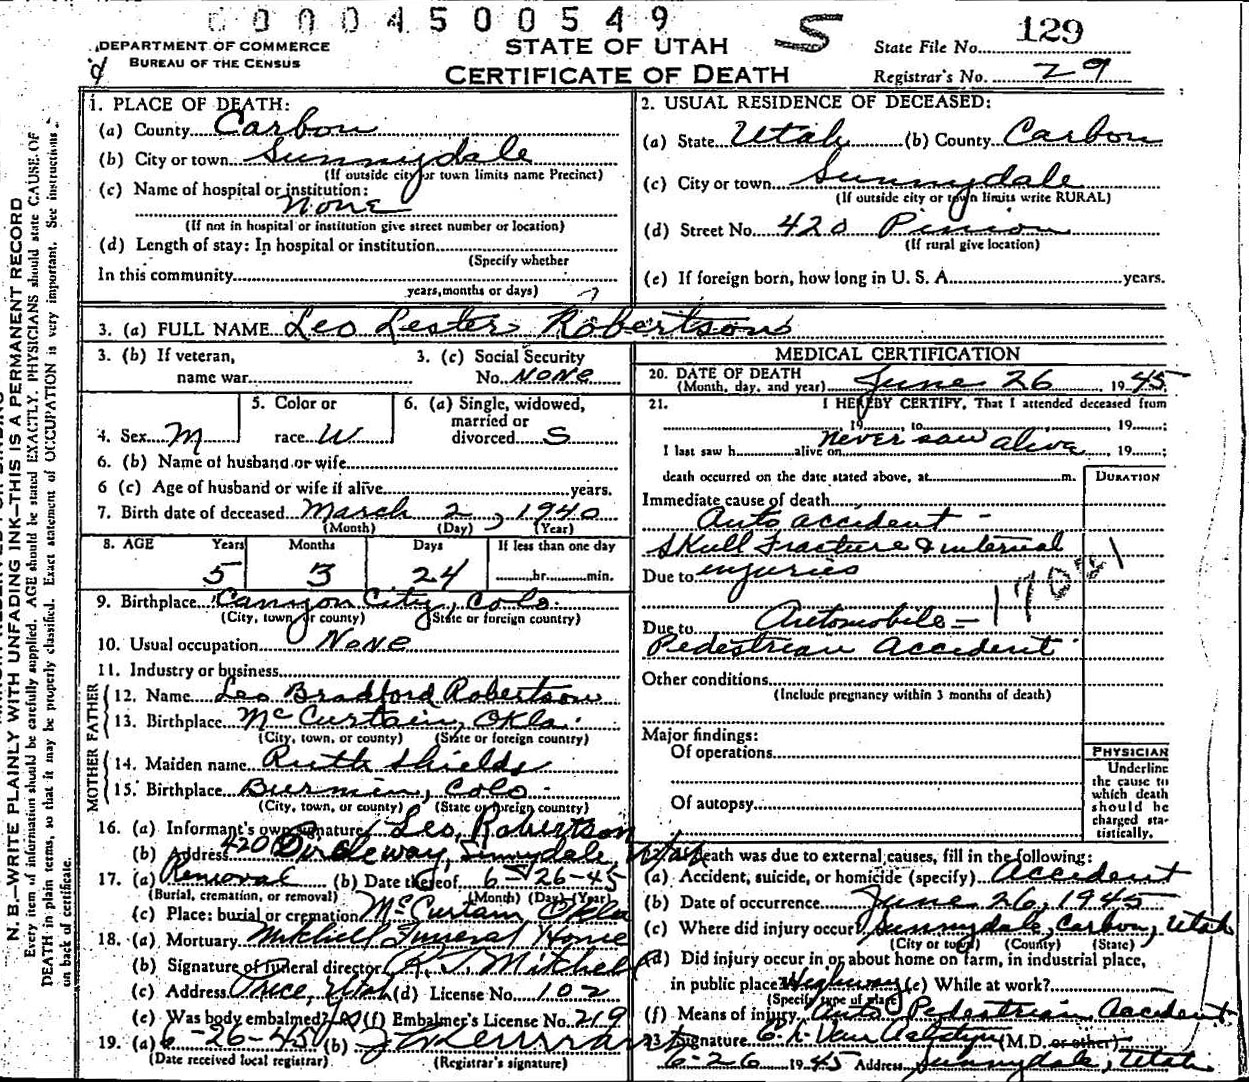 00004500549
DEPARTMENT OF COMMERCE
BUREAU OF THE CENSUS
STATE OF UTAH
CERTIFICATE OF DEATH
S
State File No. 129
Registrar's No. 29
N. B.—WRITE PLAINLY WITH UNFADING INK—THIS IS A PERMANENT RECORD
Every item of information should be carefully supplied. AGE should be stated EXACTLY. PHYSICIANS should state CAUSE OF
DEATH in plain terms, so that it may be properly classified. Exact statement of OCCUPATION is very important. See instructions
on back of certificate.
1. PLACE OF DEATH:
(a) County Carbon
(b) City or town Sunnydale
(If outside city or town limits name Precinct)
(c) Name of hospital or institution:
None
(If not in hospital or institution give street number or location)
(d) Length of stay: In hospital or institution
(Specify whether
In this community
years, months or days)
2. USUAL RESIDENCE OF DECEASED:
(a) State Utah (b) County Carbon
(c) City or town Sunnydale
(If outside city or town limits write RURAL)
(d) Street No. 420 Pinion
(If rural give location)
(e) If foreign born, how long in U. S. A. years.
3. (a) FULL NAME Leo Lester Robertson
3. (b) If veteran,
name war
3. (c) Social Security
No. None
4. Sex M
5. Color or
race W
6. (a) Single, widowed,
married or
divorced S
6. (b) Name of husband or wife
6 (c) Age of husband or wife if alive years.
7. Birth date of deceased March 2, 1940
(Month) (Day) (Year)
8. AGE Years Months Days If less than one day
5 3 24 hr. min.
9. Birthplace Canyon City, Colo.
(City, town or county) (State or foreign country)
10. Usual occupation None
11. Industry or business
FATHER
12. Name Leo Bradford Robertson
13. Birthplace McCurtain, Okla.
(City, town, or county) (State or foreign country)
MOTHER
14. Maiden name Ruth Shields
15. Birthplace , Colo.
(City, town, or county) (State or foreign country)
16. (a) Informant's own signature Leo Robertson
(b) Address 420 Sunnydale, Utah
17. (a) Removal (b) Date thereof 6-26-45
(Burial, cremation, or removal) (Month) (Day) (Year)
(c) Place: burial or cremation McCurtain, Okla
18. (a) Mortuary Mitchell Funeral Home
(b) Signature of funeral director R. J. Mitchell
(c) Address Price, Utah (d) License No. 102
(e) Was body embalmed? Yes (f) Embalmer's License No. 219
19. (a) 6-26-45 (b)
(Date received local registrar) (Registrar's signature)
MEDICAL CERTIFICATION
20. DATE OF DEATH
(Month, day, and year) June 26 1945
21. I HEREBY CERTIFY, That I attended deceased from
, 19 , to , 19 ;
I last saw h alive on never saw alive , 19 ;
death occurred on the date stated above, at m.
DURATION
Immediate cause of death
Auto accident -
Skull Fracture & internal
Due to injuries
Due to Automobile -
Pedestrian Accident
Other conditions
(Include pregnancy within 3 months of death)
Major findings:
Of operations
Of autopsy
PHYSICIAN
Underline
the cause to
which death
should be
charged sta-
tistically.
death was due to external causes, fill in the following:
(a) Accident, suicide, or homicide (specify) Accident
(b) Date of occurrence June 26, 1945
(c) Where did injury occur? Sunnydale, Carbon, Utah
(City or town) (County) (State)
(d) Did injury occur in or about home on farm, in industrial place,
in public place? Highway (e) While at work?
(Specify type of place)
(f) Means of injury Auto Pedestrian Accident
23. Signature (M.D. or other)
6-26 1945 Address Sunnydale, Utah